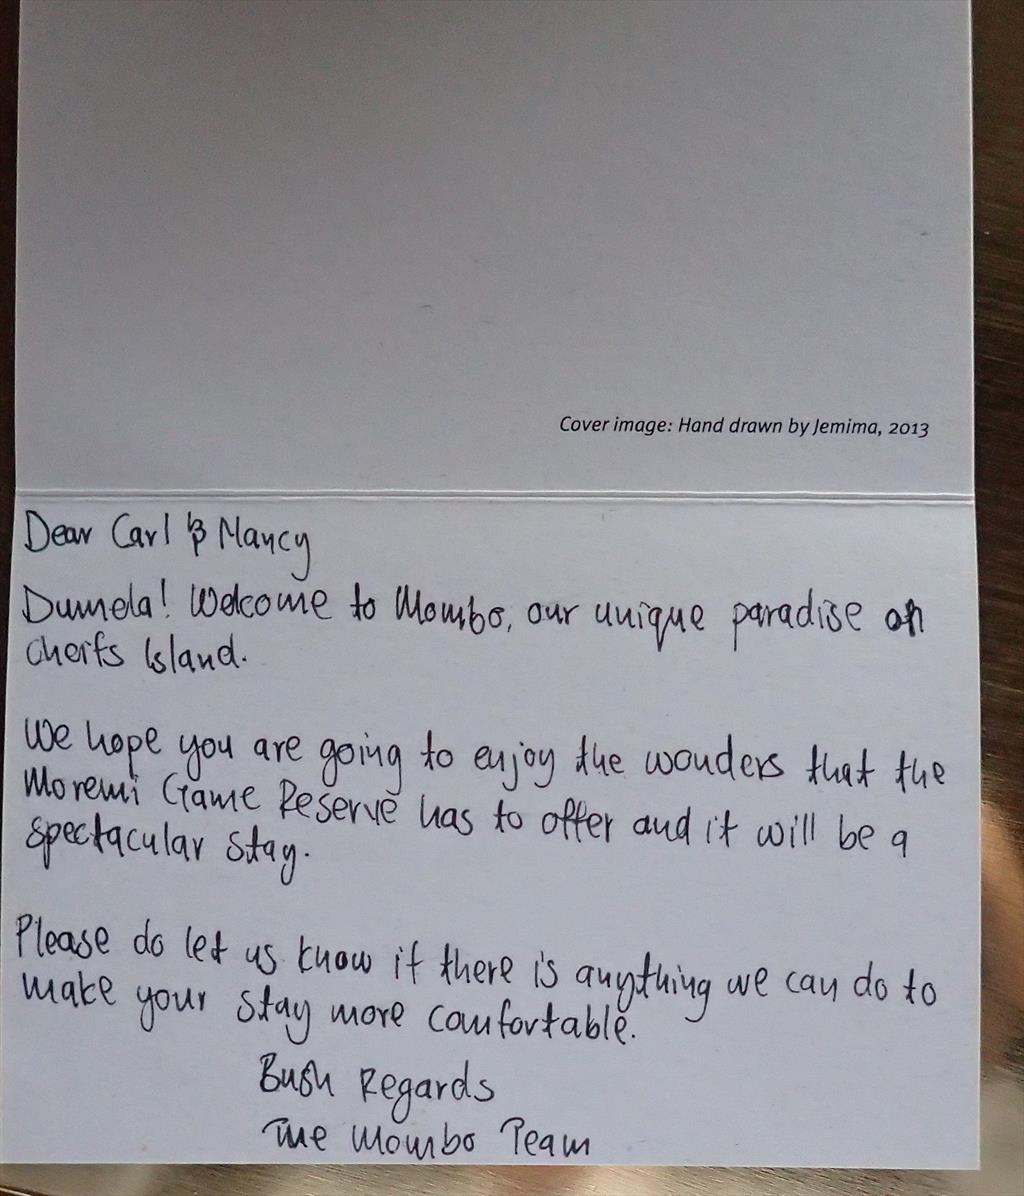 Cover image: Hand drawn by Jemima, 2013
Dear Carl & Nancy
Dumela! Welcome to Mombo, our unique paradise on
Cheifs Island.
We hope you are going to enjoy the wonders that the
Moremi Game Reserve has to offer and it will be a
spectacular stay.
Please do let us know if there is anything we can do to
make your stay more comfortable.
Bush Regards
The Mombo Team